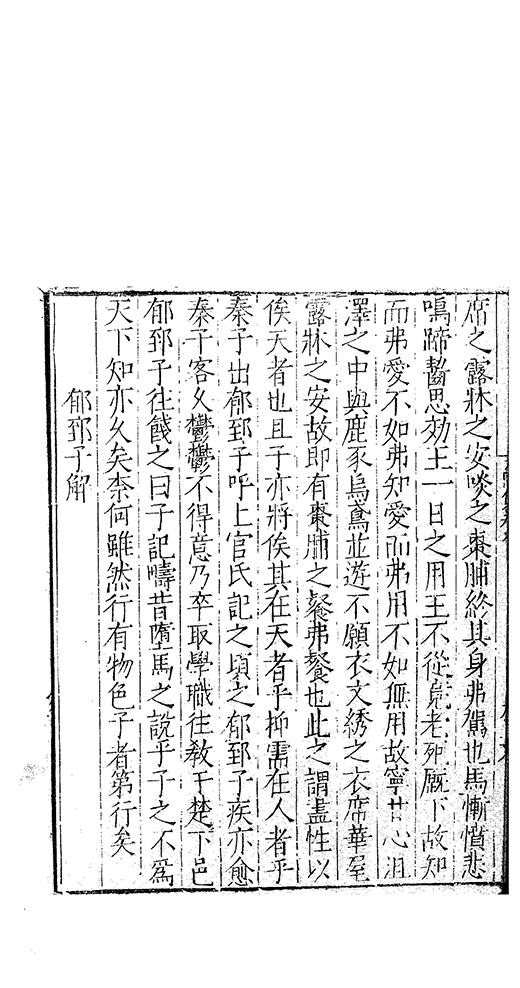 席之露牀之安啖之棗脯終其身弗駕也馬慚憤悲
鳴蹄齧思効王一日之用王不從竟老死厩下故知
而弗愛不如弗知愛而弗用不如無用故寧甘心沮
澤之中與鹿豕烏鳶並遊不願衣文綉之衣席華屋
露牀之安故即有棗脯之餐弗餐也此之謂盡性以
俟天者也且子亦將俟其在天者乎抑需在人者乎
秦子出郁郅子呼上官氏記之頃之郁郅子疾亦愈
秦子客久鬱鬱不得意乃卒取學職往教于楚下邑
郁郅子往餞之曰子記疇昔墮馬之說乎子之不為
天下知亦久矣柰何雖然行有物色子者第行矣
郁郅子解